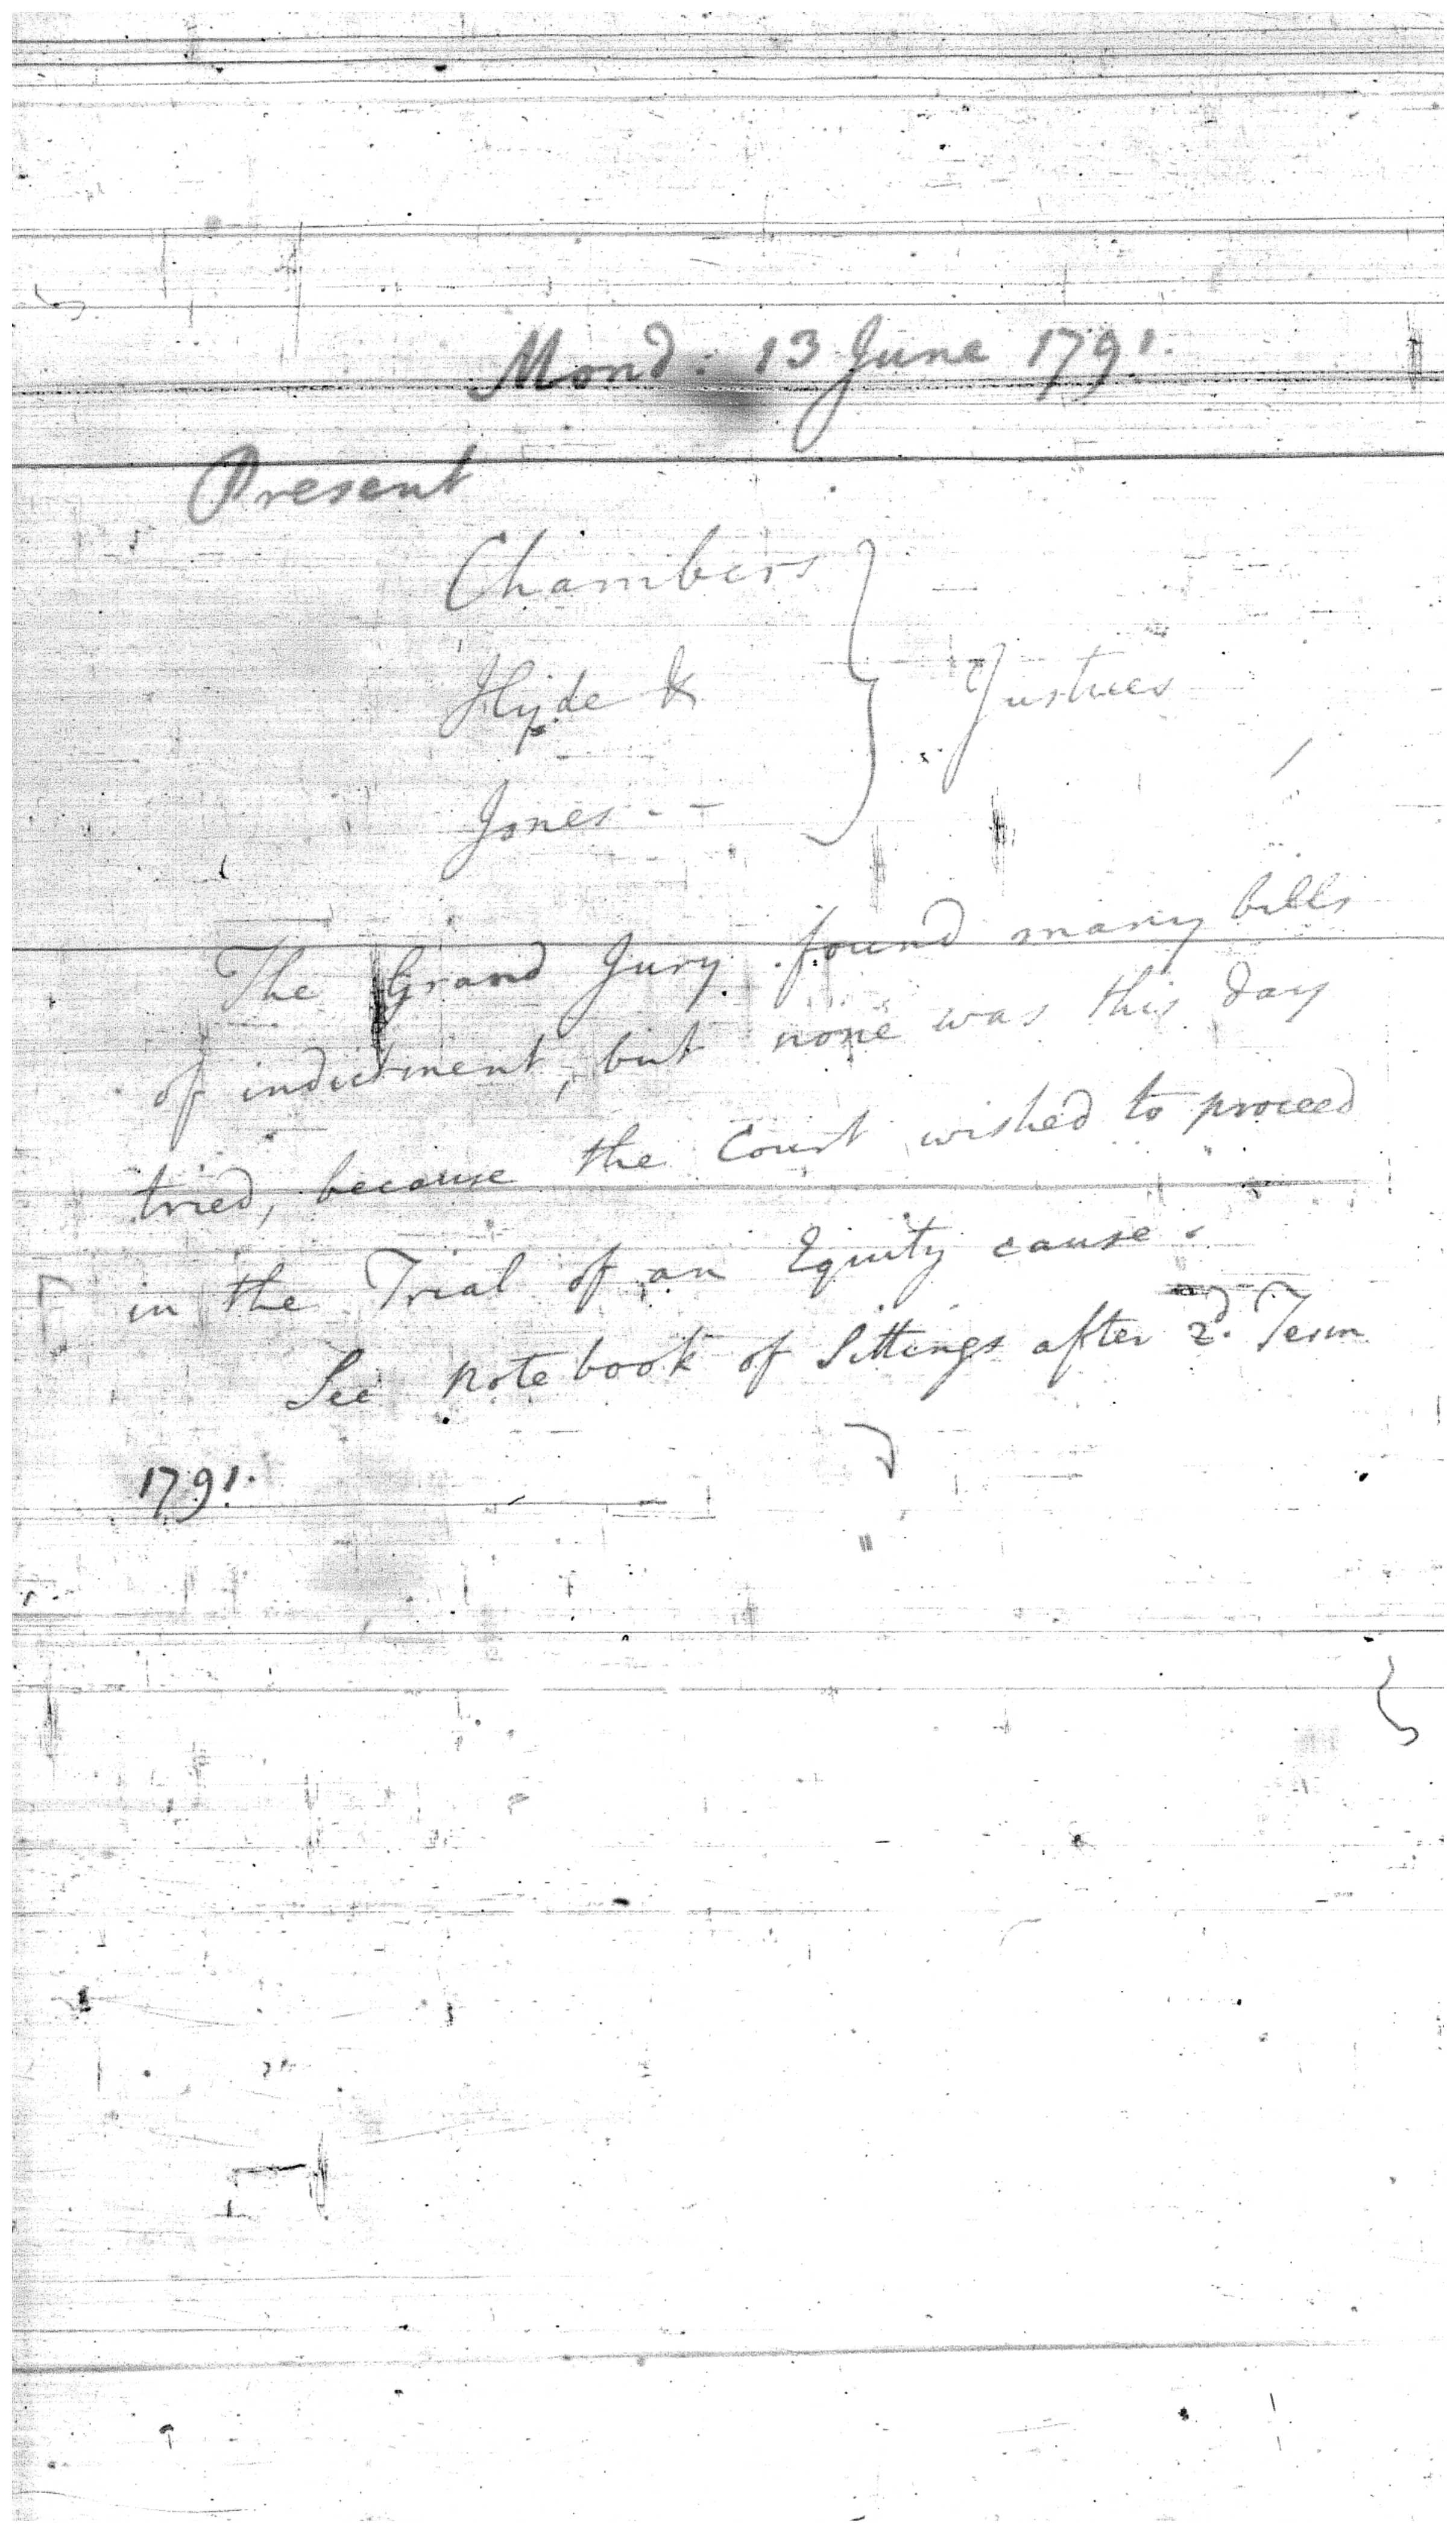 Mond: 13 June 1791.
Present
Chambers
Hyde & } Justices
Jones - -
The Grand Jury found many bills
of indictment, but none was this day
tried, because the Court wished to proceed
in the Trial of an Equity cause.
See Notebook of Sittings after 2d. Term
1791.